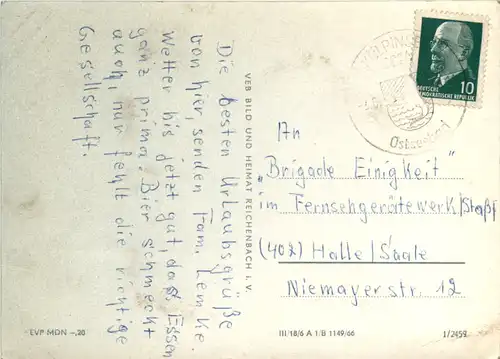 Die besten Urlaubsgrüße
von hier, senden Fam. Lemke.
Wetter bis jetzt gut, das Essen
ganz prima. Bier schmeckt
auch, nur fehlt die richtige
Gesellschaft.
VEB BILD UND HEIMAT REICHENBACH i. V.
DEUTSCHE
DEMOKRATISCHE REPUBLIK
10
Ostseebad
An
"Brigade Einigkeit"
im Fernsehgerätewerk/Staßf
(402) Halle/Saale
Niemayerstr. 12
EVP MDN -,20
III/18/6 A 1/B 1149/66
1/2459